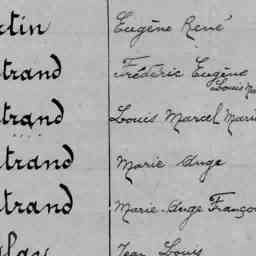 rtin Eugène René
trand Frédéric Eugène
Louis Ma
trand Louis Marcel Mari
trand Marie Ange
trand Marie-Ange Françoi
Jean Louis